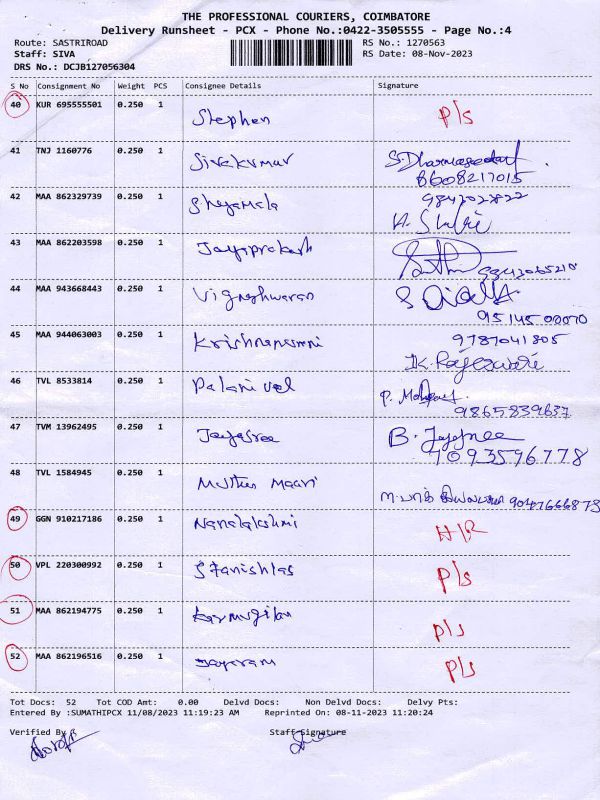 THE PROFESSIONAL COURIERS, COIMBATORE
Delivery Runsheet - PCX - Phone No.:0422-3505555 - Page No.:4
Route: SASTRIROAD RS No.: 1270563
Staff: SIVA RS Date: 08-Nov-2023
DRS No.: DCJB127056304
S No Consignment No Weight PCS Consignee Details Signature
40 KUR 695555501 0.250 1 Stephen P/s
41 TNJ 1160776 0.250 1 Sivakumar
8608217015
42 MAA 862329739 0.250 1 Shyamala 9842702822
43 MAA 862203598 0.250 1 Jayaprakash
44 MAA 943668443 0.250 1 Vigneshwaran
95145 00070
45 MAA 944063003 0.250 1 9787041805
K. Rajeswari
46 TVL 8533814 0.250 1 Palanivel
9865839637
47 TVM 13962495 0.250 1 Jayasree B. Jayasree
7093596778
48 TVL 1584945 0.250 1 Muthu Maari
9047666873
49 GGN 910217186 0.250 1 H/R
50 VPL 220300992 0.250 1 Stanishlas P/s
51 MAA 862194775 0.250 1 Karmugilan P/s
52 MAA 862196516 0.250 1 Jayaram P/s
Tot Docs: 52 Tot COD Amt: 0.00 Delvd Docs: Non Delvd Docs: Delvy Pts:
Entered By :SUMATHIPCX 11/08/2023 11:19:23 AM Reprinted On: 08-11-2023 11:20:24
Verified By Staff Signature